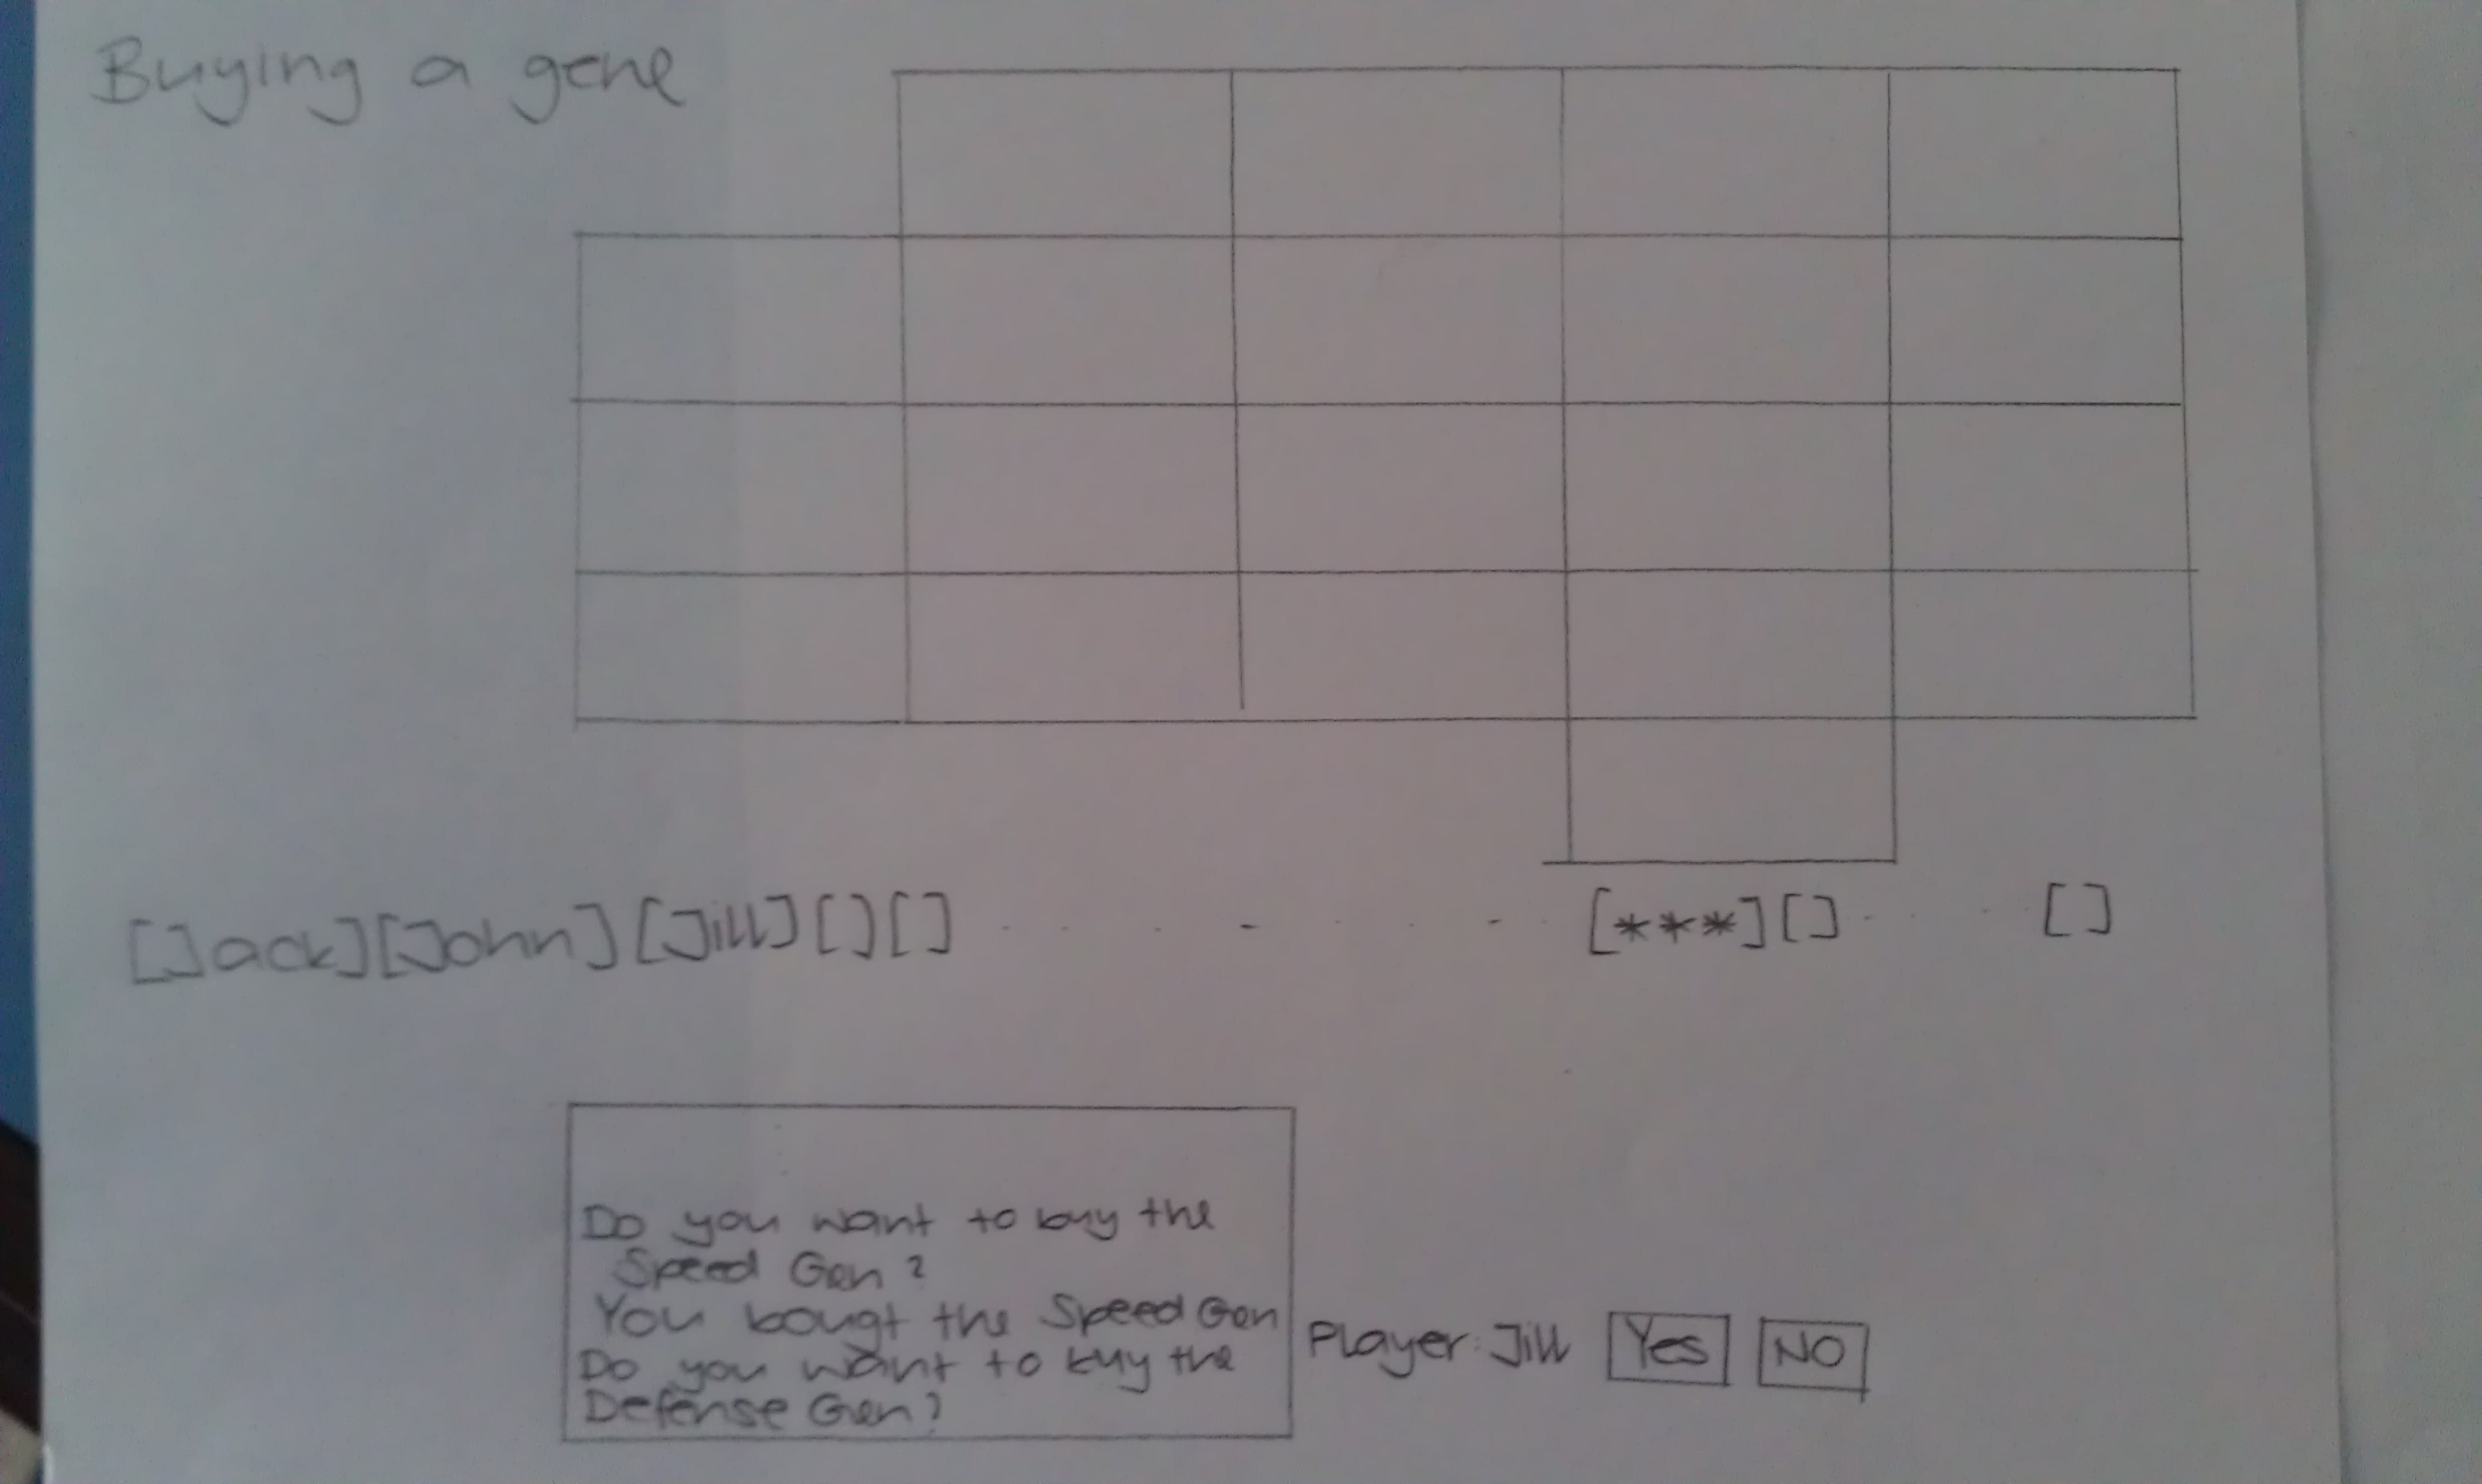 Buying a gene
[Jack][John][Jill][][] . . . - . . - . [***][] - . . . []
Do you want to buy the
Speed Gen?
You bougt the Speed Gen
Do you want to buy the
Defense Gen?
Player: Jill Yes NO